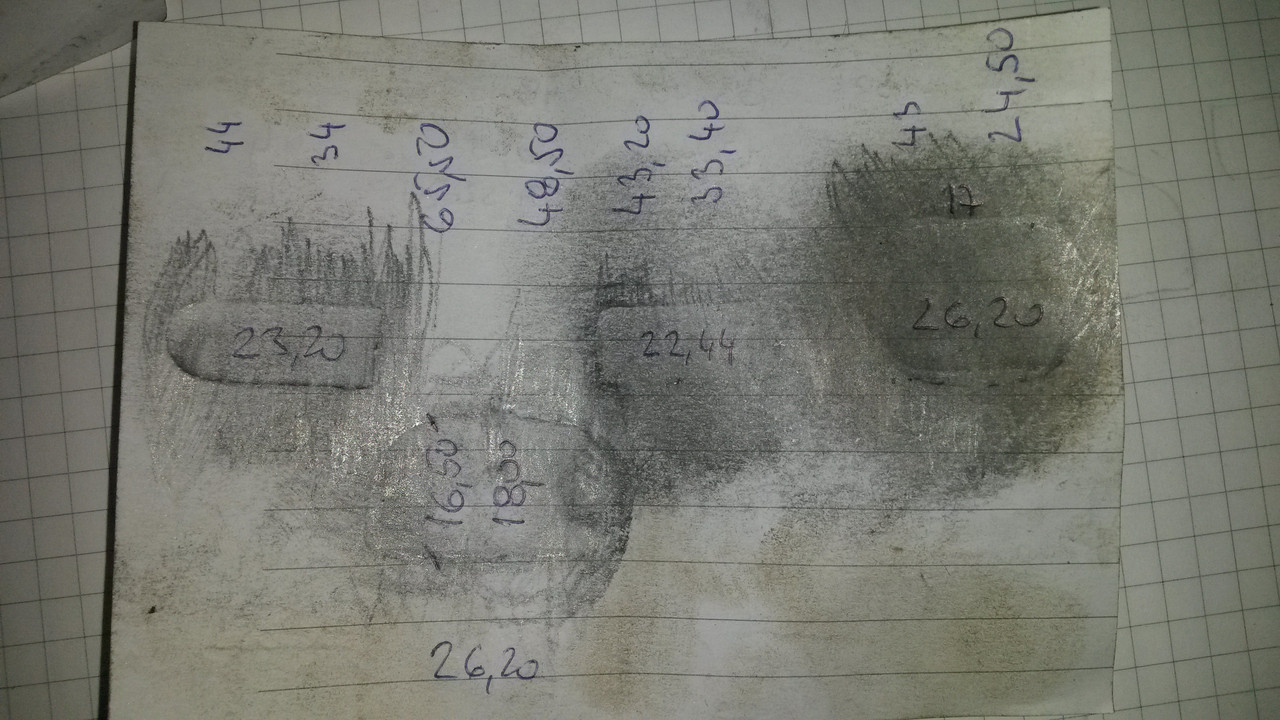 44
34
65,70
48,50
43,20
33,40
45
24,50
17
23,20
22,44
26,20
16,50
18,00
26,20